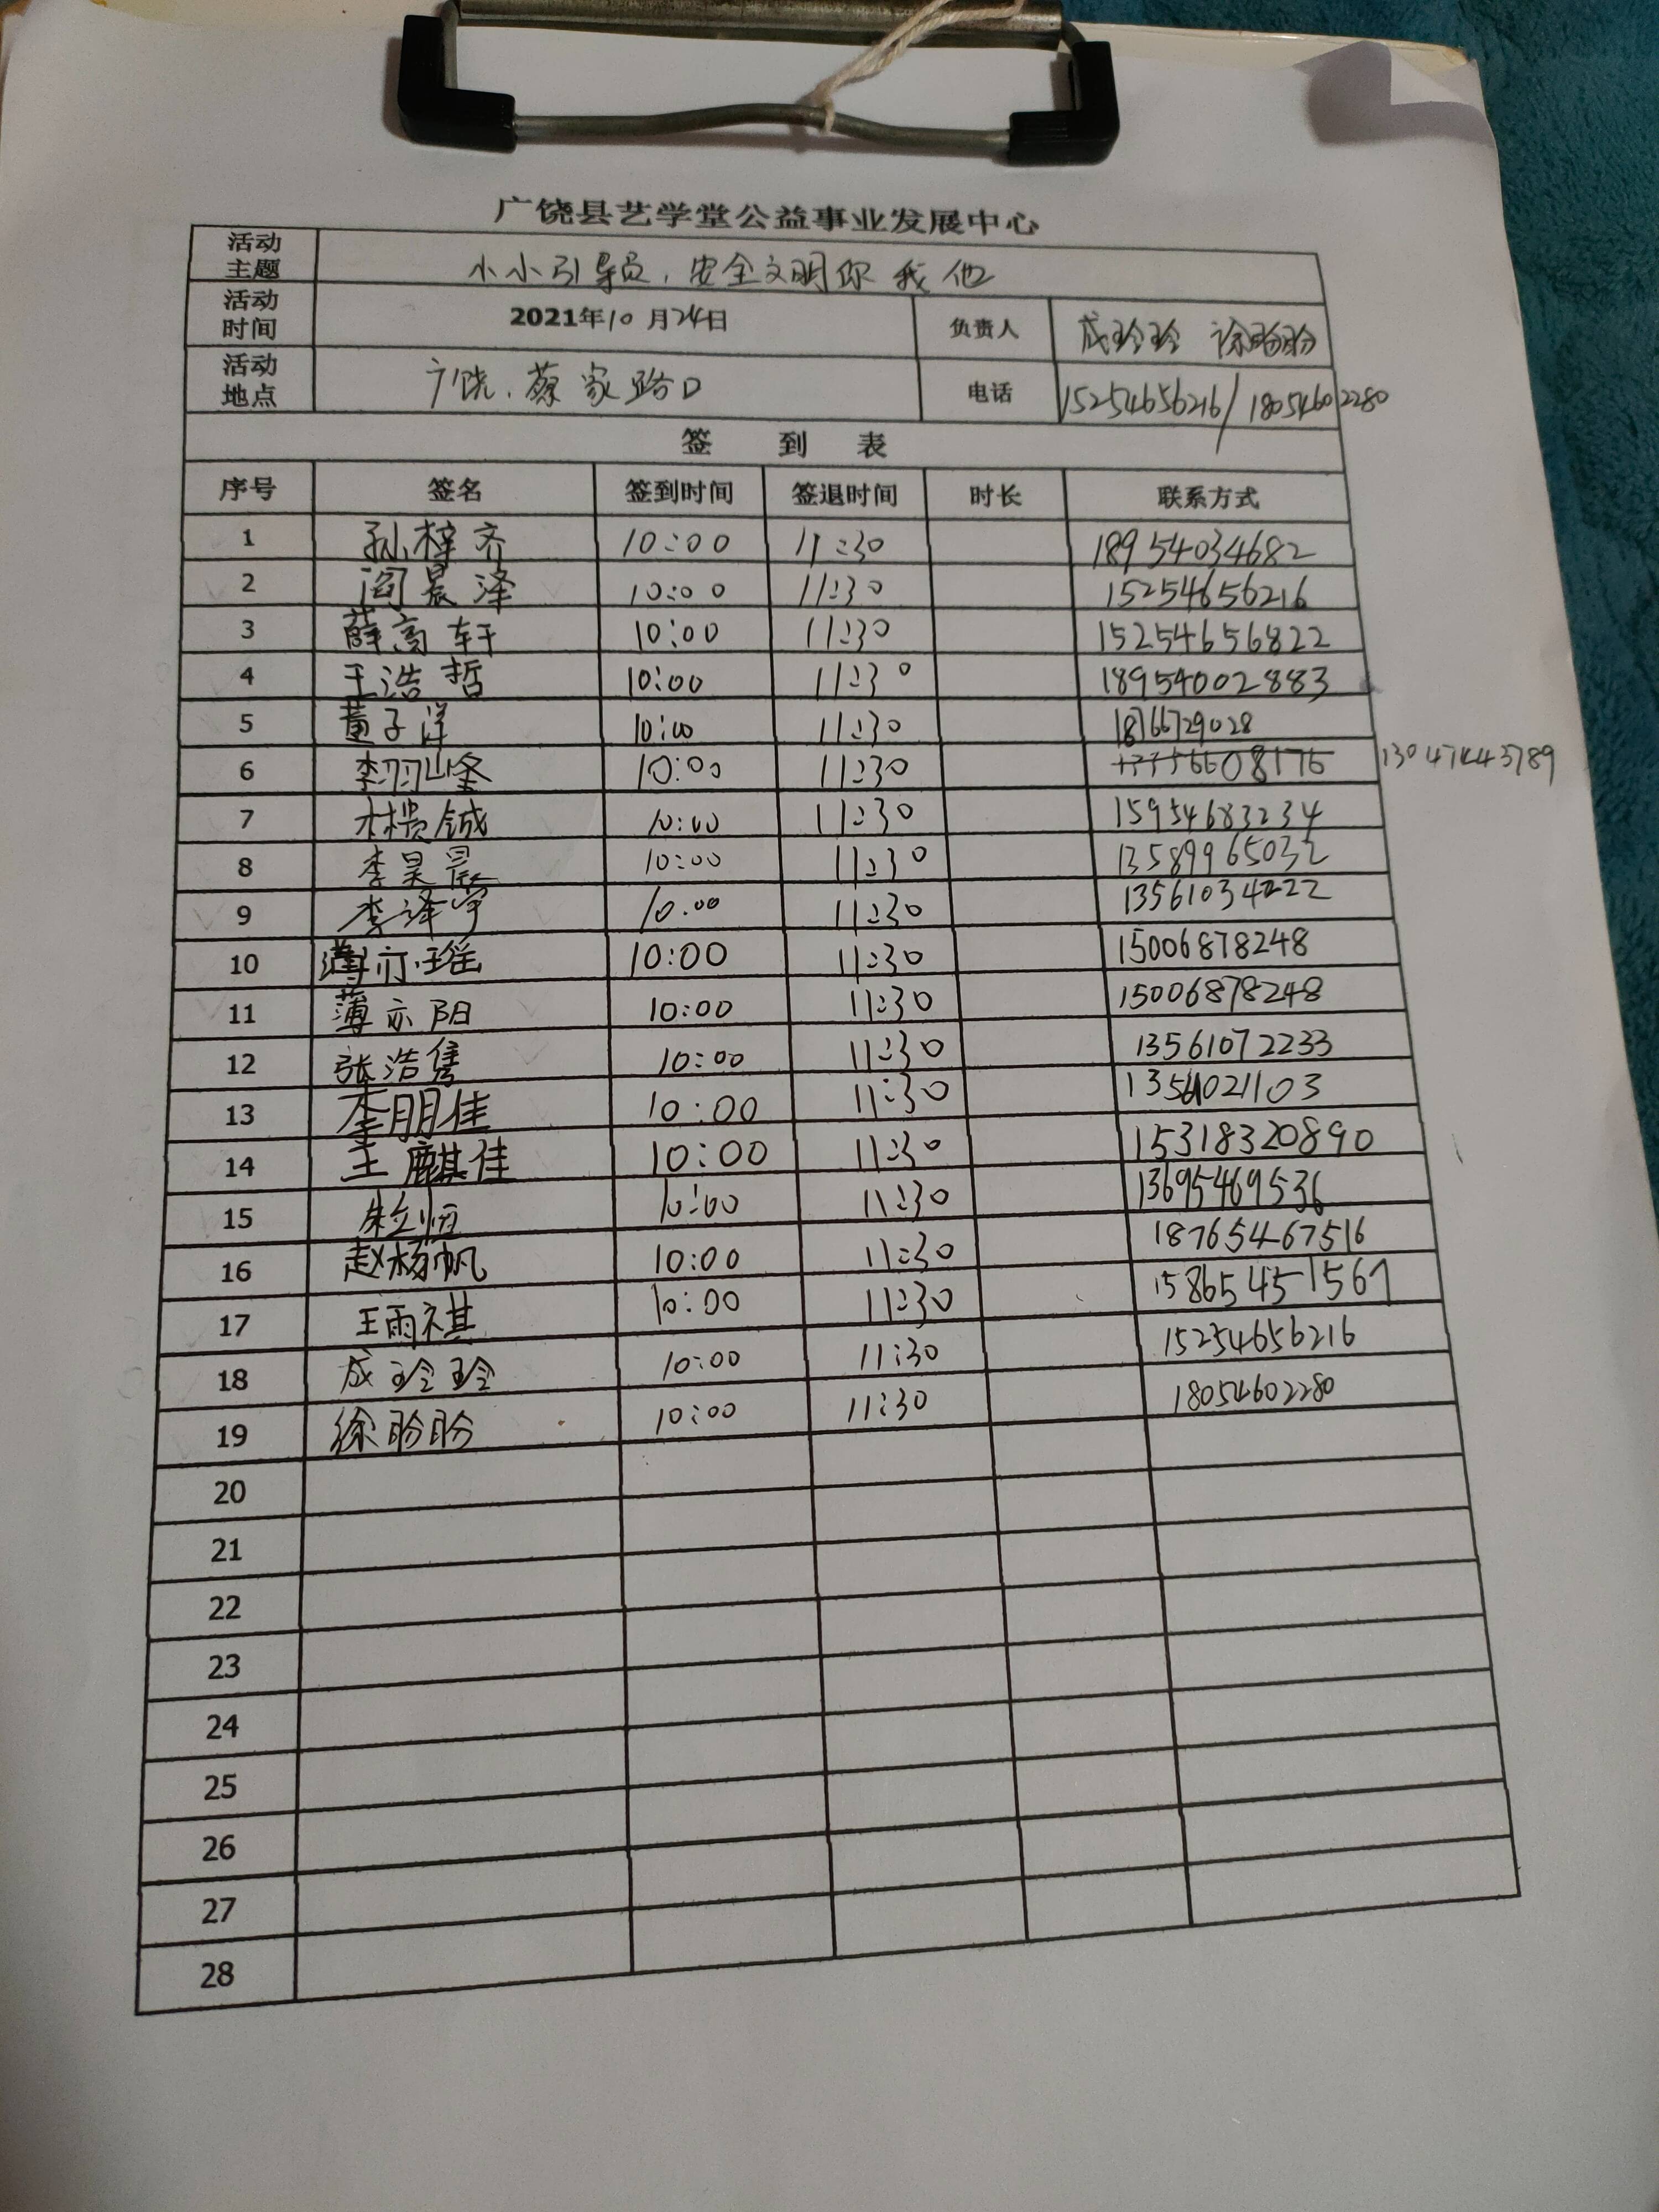 广饶县艺学堂公益事业发展中心
活动主题 小小引导员，安全文明你我他
活动时间 2021年10月24日 负责人 成玲玲 徐盼盼
活动地点 广饶.蔡家路口 电话 15254656216/18054602280
签到表
序号 签名 签到时间 签退时间 时长 联系方式
1 孙梓齐 10:00 11:30 18954034682
2 阎晨泽 10:00 11:30 15254656216
3 薛高轩 10:00 11:30 15254656822
4 王浩哲 10:00 11:30 18954002883
5 董子洋 10:00 11:30 18766729028
6 10:00 11:30
7 10:00 11:30 15954683234
8 李昊晟 10:00 11:30 13589965032
9 李泽宇 10:00 11:30
10 薄亦瑶 10:00 11:30 15006878248
11 薄亦阳 10:00 11:30 15006878248
12 张浩隽 10:00 11:30 13561072233
13 李朋佳 10:00 11:30
14 王麒佳 10:00 11:30 15318320890
15 朱立恒 10:00 11:30 13695469536
16 赵杨帆 10:00 11:30 18765467516
17 王雨祺 10:00 11:30 15865451567
18 成玲玲 10:00 11:30 15254656216
19 徐盼盼 10:00 11:30 18054602280
20
21
22
23
24
25
26
27
28